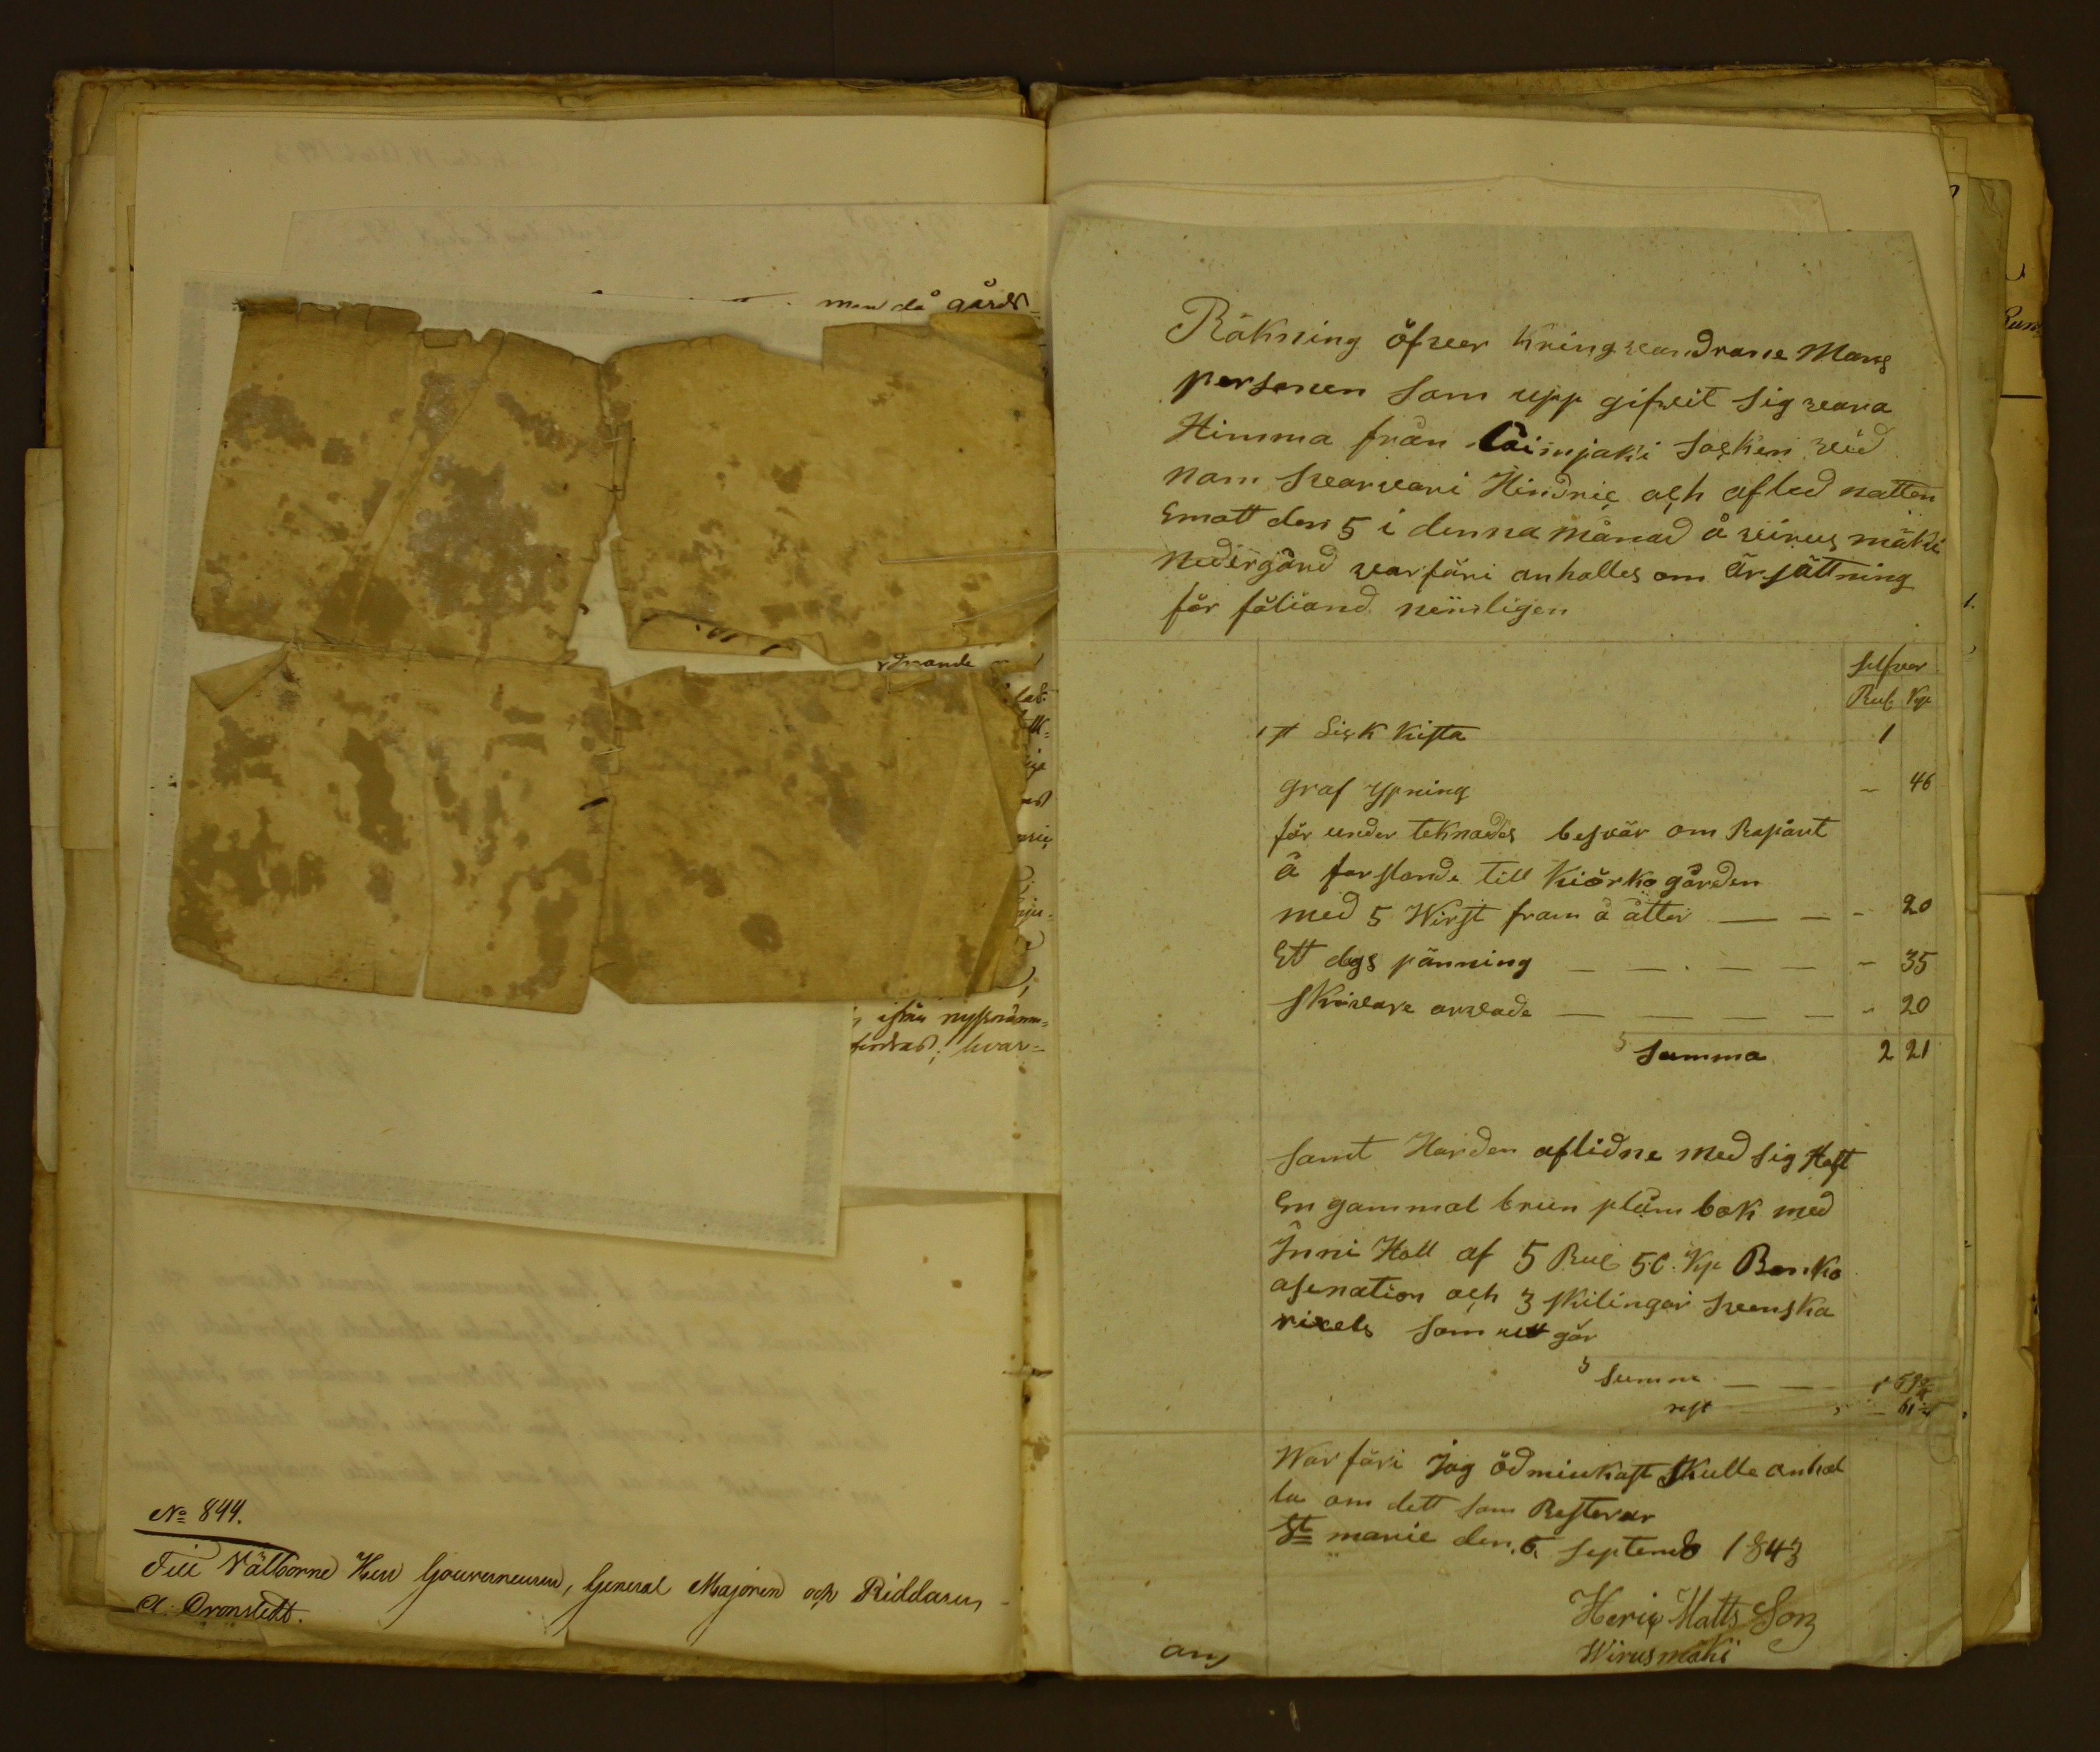 men då gårds-
ordnande
ifrån nyssnämn-
hvar-
No 844.
Till Välborne Herr Gouverneuren, General Majoren och Riddaren
A. Cronstedt.
Räkning öfver Kringvandrane Mans
personen som upp gifvit sig vara
Himma från Loimjaki socken vid
nam Svarvari Hindric och afled natten
Emott den 5 i denna månad å virus mäki
nedergård varföri anhalles om Ärsättning
för föliand nemligen
silfver
Rub Kp
1 st Lick Kista 1
graf ypning - 46
för under teknades besvär om Rapårt
å forslande till Kiörko gården
med 5 Wirst fram å åtter - 20
Ett dags pänning - 35
skrivare arvade - 20
Summa 2 21
samt Har den aflidne med sig Haft
En gammal brun plåm bok med
Inni Hall af 5 Rub 50 Kp Banko
asination och 3 skilingar svenska
rixels som utt gör
Summa 1 59
rest 61
War föri jag ödmiukast skulle anhal
la om dett som Resterar
St marie den 6 septemb 1843
Heric Matts Son
Wirusmäki